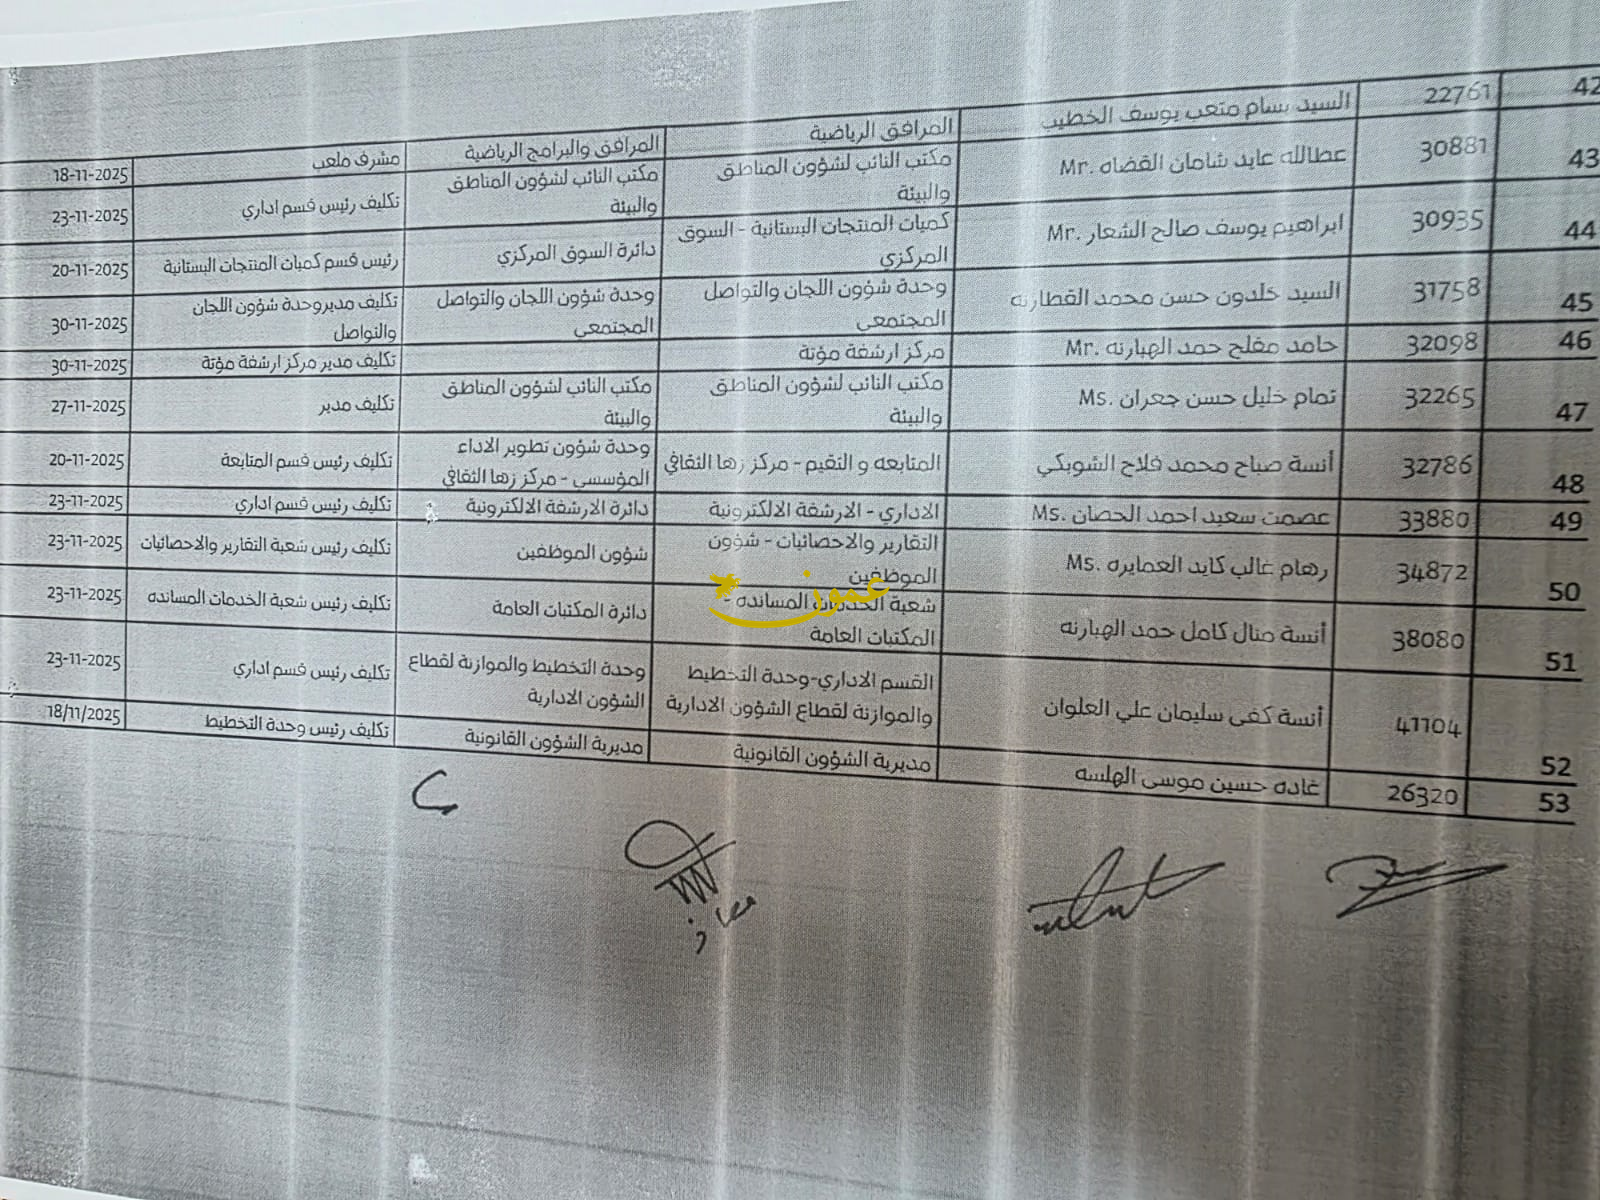 42 22761 السيد بسام متعب يوسف الخطيب المرافق الرياضية المرافق والبرامج الرياضية مشرف ملعب 18-11-2025
43 30881 عطالله عايد شامان القضاه Mr. مكتب النائب لشؤون المناطق والبيئة مكتب النائب لشؤون المناطق والبيئة تكليف رئيس قسم اداري 23-11-2025
44 30935 ابراهيم يوسف صالح الشعار Mr. كميات المنتجات البستانية - السوق المركزي دائرة السوق المركزي رئيس قسم كميات المنتجات البستانية 20-11-2025
45 31758 السيد خلدون حسن محمد القطارنه وحدة شؤون اللجان والتواصل المجتمعي وحدة شؤون اللجان والتواصل المجتمعي تكليف مديروحدة شؤون اللجان والتواصل 30-11-2025
46 32098 حامد مفلح حمد الهبارنه Mr. مركز ارشفة مؤتة تكليف مدير مركز ارشفة مؤتة 30-11-2025
47 32265 تمام خليل حسن جعران Ms. مكتب النائب لشؤون المناطق والبيئة مكتب النائب لشؤون المناطق والبيئة تكليف مدير 27-11-2025
48 32786 أنسة صباح محمد فلاح الشوبكي المتابعه و التقيم - مركز زها الثقافي وحدة شؤون تطوير الاداء المؤسسي - مركز زها الثقافي تكليف رئيس قسم المتابعة 20-11-2025
49 33880 عصمت سعيد احمد الحصان Ms. الاداري - الارشفة الالكترونية دائرة الارشفة الالكترونية تكليف رئيس قسم اداري 23-11-2025
50 34872 رهام غالب كايد العمايره Ms. التقارير والاحصائيات - شؤون الموظفين شؤون الموظفين تكليف رئيس شعبة التقارير والاحصائيات 23-11-2025
51 38080 أنسة منال كامل حمد الهبارنه شعبة الخدمات المسانده - المكتبات العامة دائرة المكتبات العامة تكليف رئيس شعبة الخدمات المسانده 23-11-2025
52 41104 أنسة كفى سليمان علي العلوان القسم الاداري-وحدة التخطيط والموازنة لقطاع الشؤون الادارية وحدة التخطيط والموازنة لقطاع الشؤون الادارية تكليف رئيس قسم اداري 23-11-2025
53 26320 غاده حسين موسى الهلسه مديرية الشؤون القانونية مديرية الشؤون القانونية تكليف رئيس وحدة التخطيط 18/11/2025
عمون